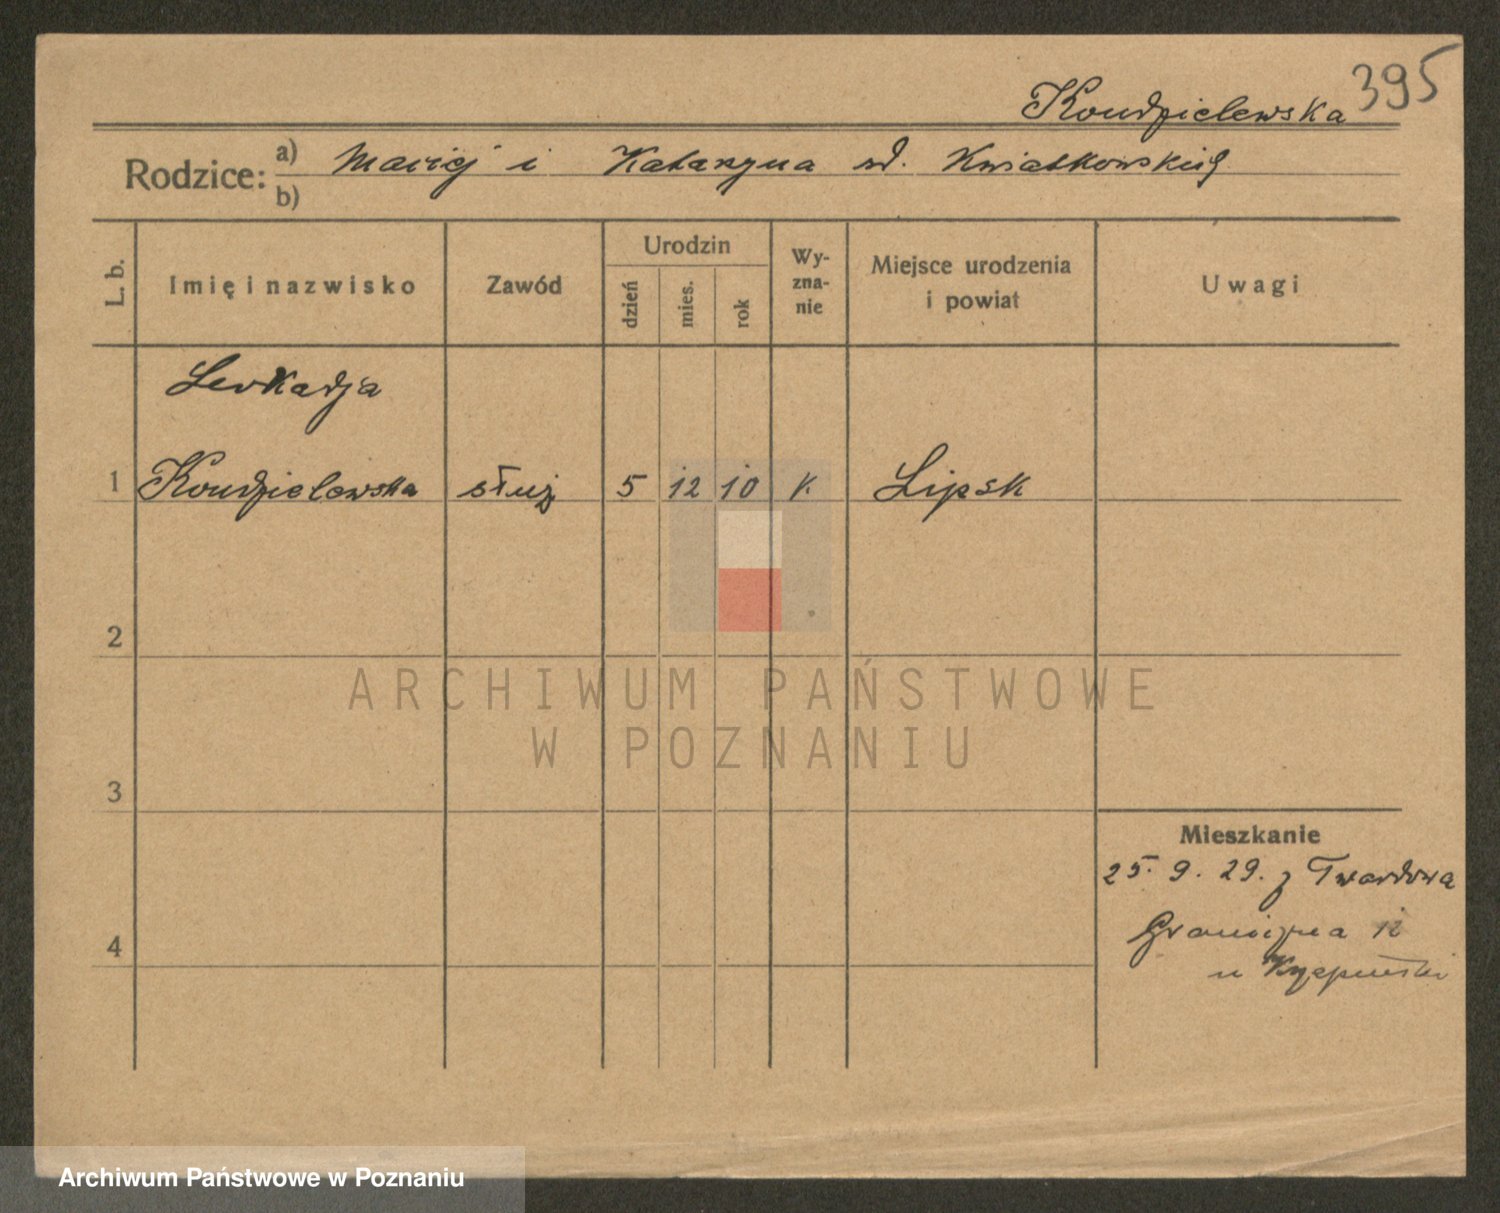 395
Kondzielewska
Rodzice: a) Maciej i Katarzyna zd. Kwiatkowskich
b)
L. b.
Imię i nazwisko
Zawód
Urodzin
dzień
mies.
rok
Wy-
zna-
nie
Miejsce urodzenia
i powiat
Uwagi
Leokadja
1 Kondzielewska służ. 5 12 10 K. Lipsk
2
3
4
Mieszkanie
25. 9. 29. z Twardowa
Graniczna 12
u
ARCHIWUM PAŃSTWOWE
W POZNANIU
Archiwum Państwowe w Poznaniu